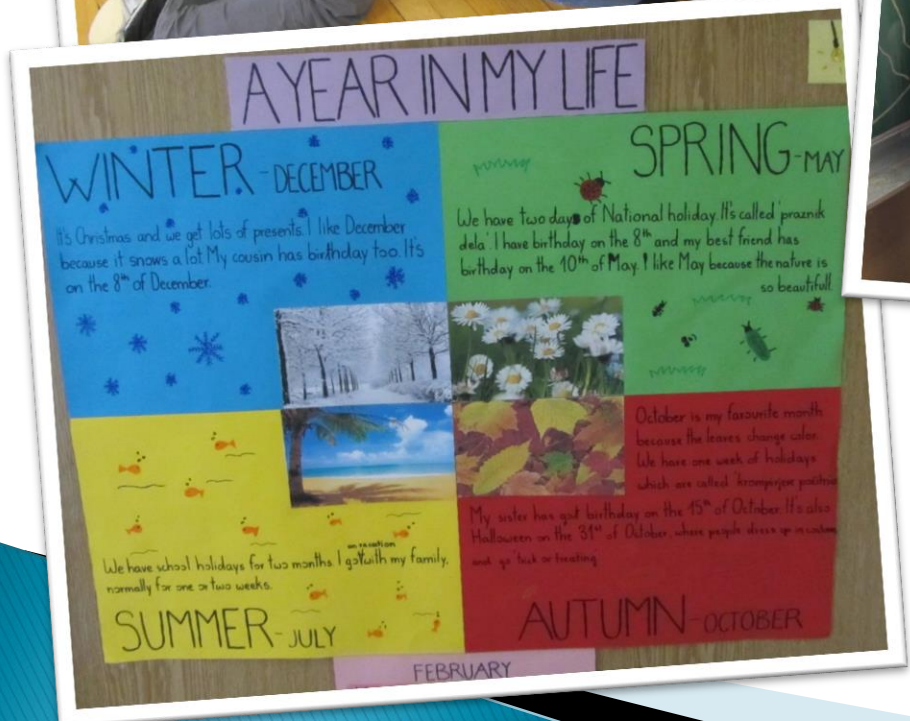 A YEAR IN MY LIFE
WINTER - DECEMBER
It's Christmas and we get lots of presents. I like December
because it snows a lot. My cousin has birthday too. It's
on the 8th of December.
SPRING - MAY
We have two days of National holiday. It's called 'praznik
dela'. I have birthday on the 8th and my best friend has
birthday on the 10th of May. I like May because the nature is
so beautiful!
on vacation
We have school holidays for two months. I go with my family,
normally for one or two weeks.
SUMMER - JULY
October is my favourite month
because the leaves change color.
We have one week of holidays
which are called 'krompirjeve
My sister has got birthday on the 15th of October. It's also
Halloween on the 31st of October, where people dress up in
and go
AUTUMN - OCTOBER
FEBRUARY